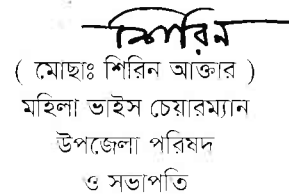 শিরিন
( মোছাঃ শিরিন আক্তার )
মহিলা ভাইস চেয়ারম্যান
উপজেলা পরিষদ
ও সভাপতি